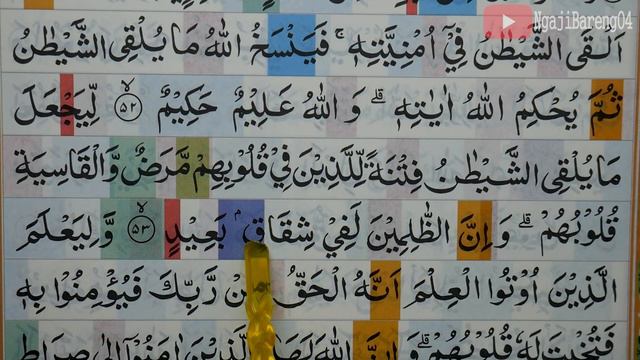 NgajiBareng04
اَلْقَى الشَّيْطٰنُ فِيْٓ اُمْنِيَّتِهٖۚ فَيَنْسَخُ اللّٰهُ مَا يُلْقِى الشَّيْطٰنُ
ثُمَّ يُحْكِمُ اللّٰهُ اٰيٰتِهٖۗ وَاللّٰهُ عَلِيْمٌ حَكِيْمٌ ۙ ٥٢ لِّيَجْعَلَ
مَا يُلْقِى الشَّيْطٰنُ فِتْنَةً لِّلَّذِيْنَ فِيْ قُلُوْبِهِمْ مَّرَضٌ وَّالْقَاسِيَةِ
قُلُوْبُهُمْۗ وَاِنَّ الظّٰلِمِيْنَ لَفِيْ شِقَاقٍۢ بَعِيْدٍ ۙ ٥٣ وَّلِيَعْلَمَ
الَّذِيْنَ اُوْتُوا الْعِلْمَ اَنَّهُ الْحَقُّ مِنْ رَّبِّكَ فَيُؤْمِنُوْا بِهٖ
فَتُخْبِتَ لَهٗ قُلُوْبُهُمْۗ وَاِنَّ اللّٰهَ لَهَادِ الَّذِيْنَ اٰمَنُوْٓا اِلٰى صِرَاطٍ